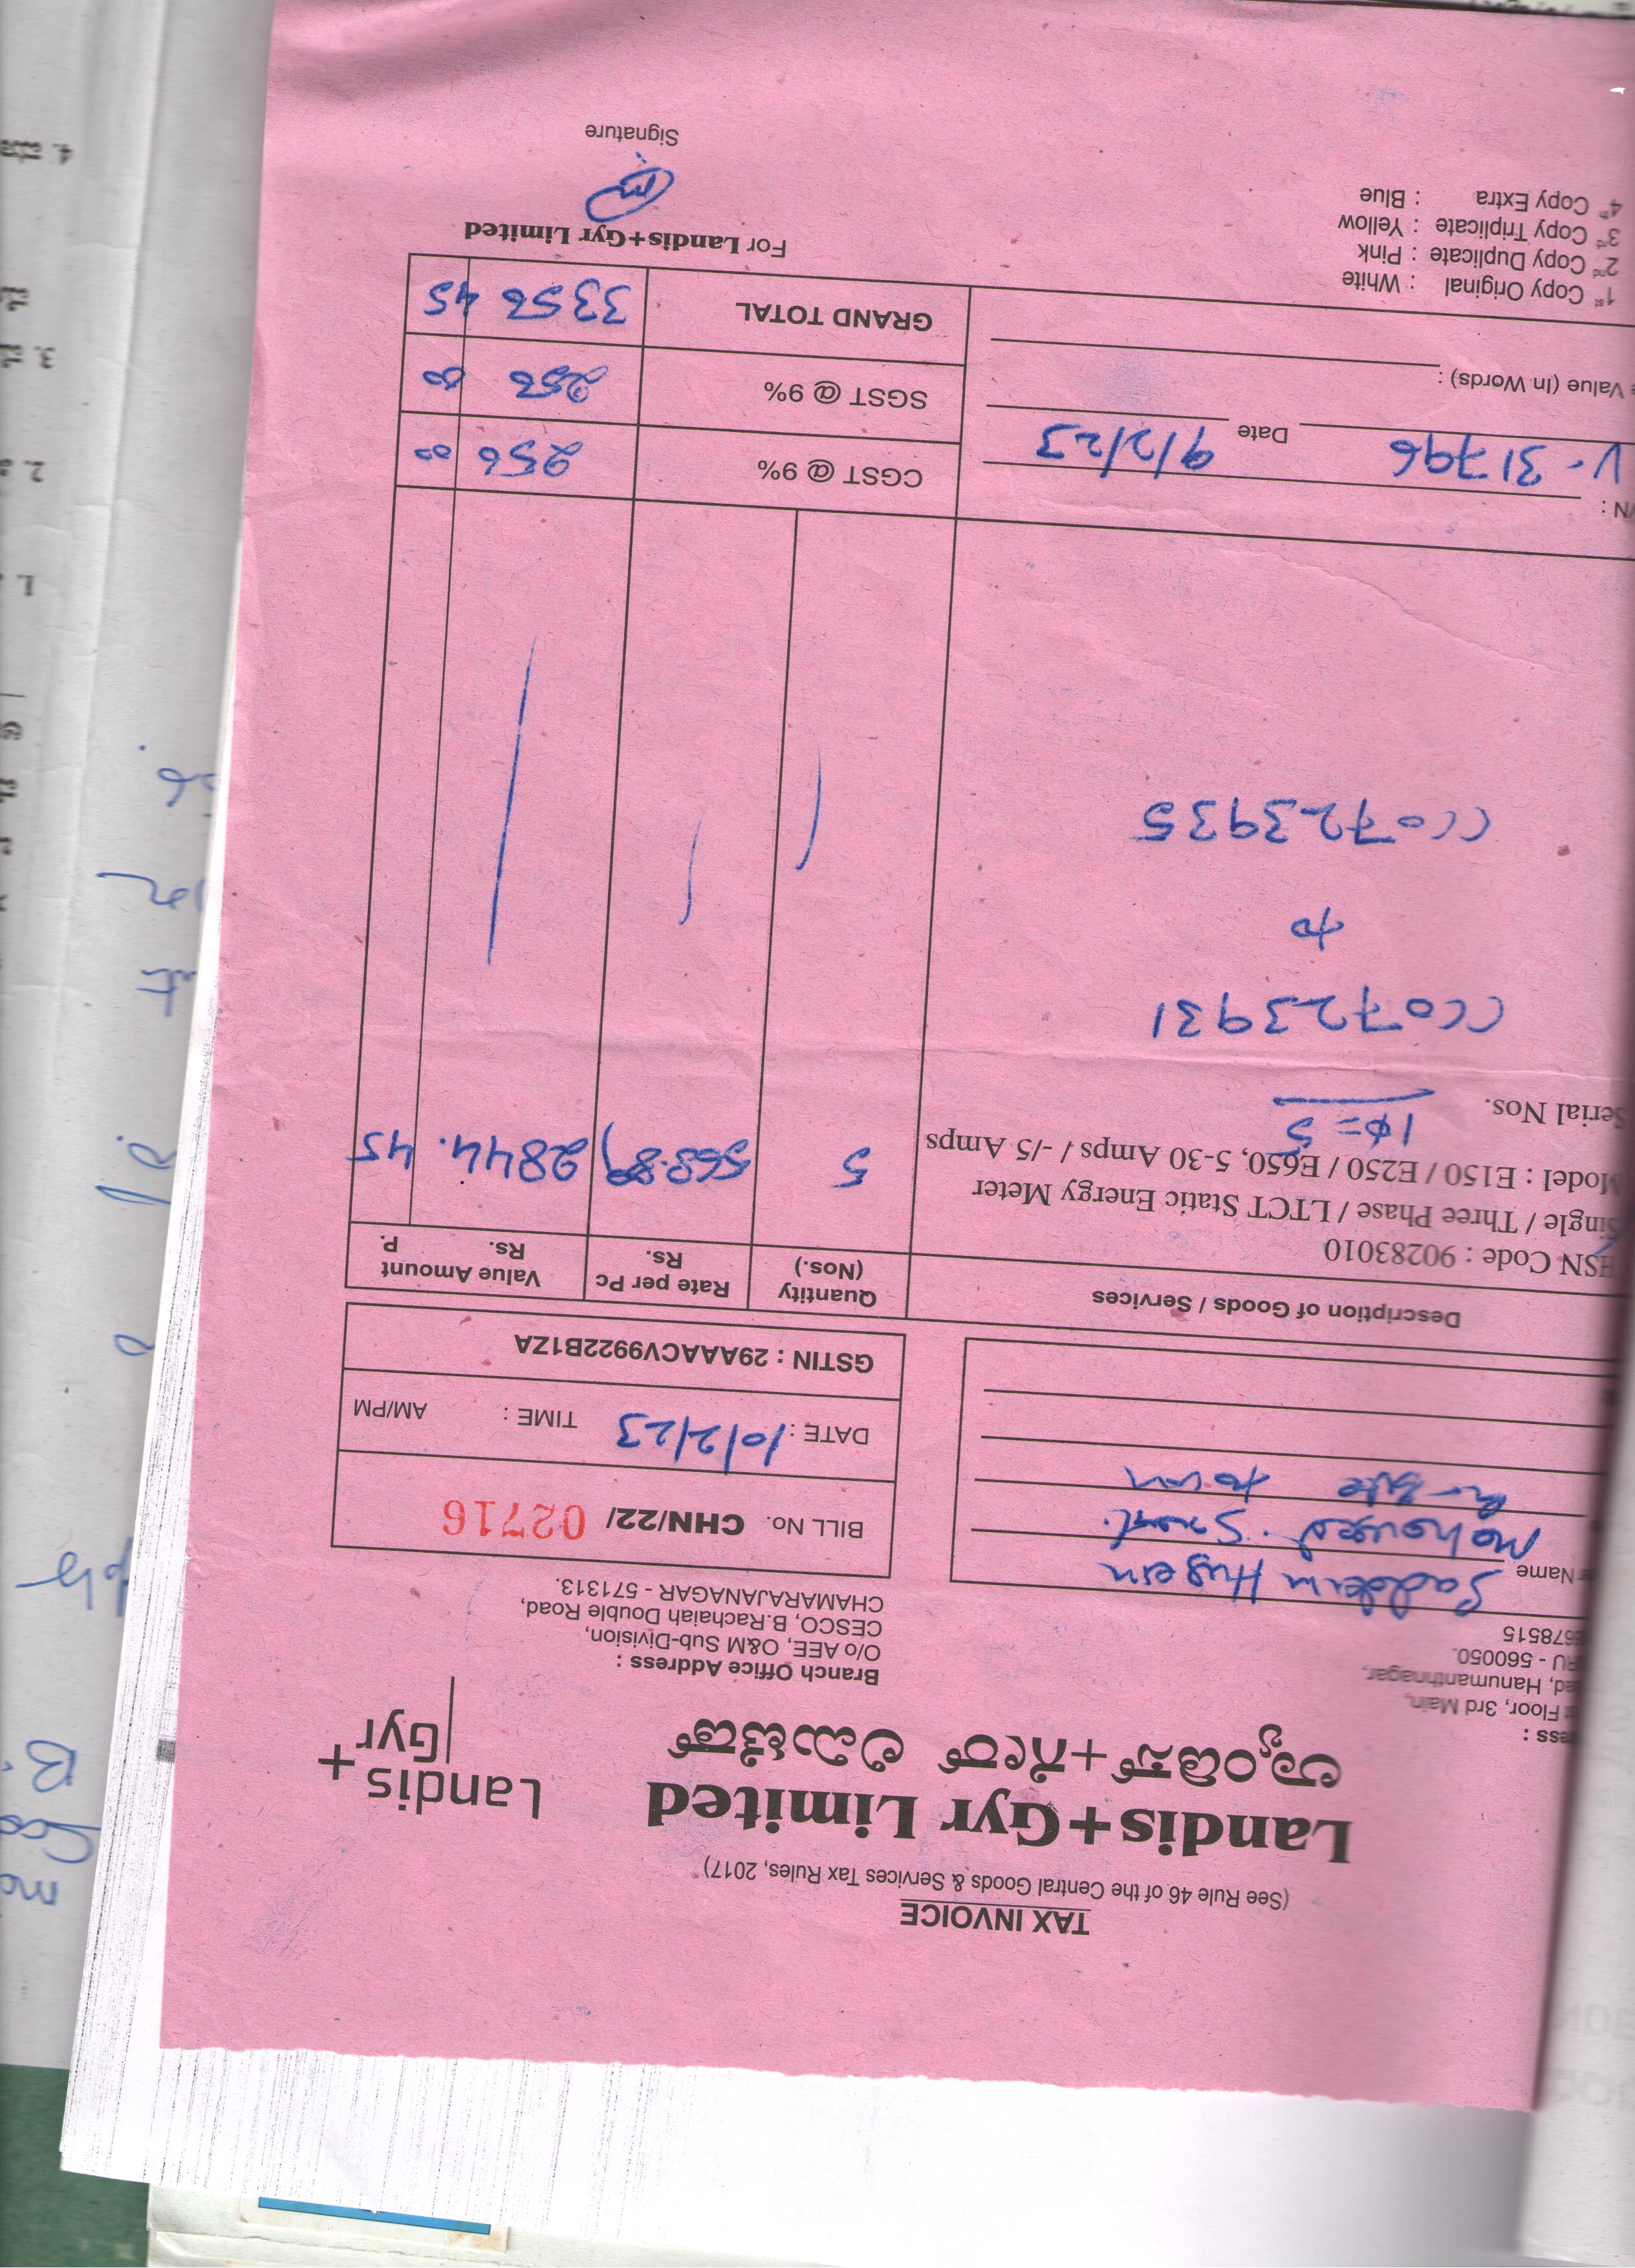 TAX INVOICE
(See Rule 46 of the Central Goods & Services Tax Rules, 2017)
Landis+Gyr Limited
ಲ್ಯಾಂಡಿಸ್+ಗೇರ್ ಲಿಮಿಟೆಡ್
Landis+
Gyr
ress :
st Floor, 3rd Main,
ad, Hanumanthnagar,
RU - 560050.
678515
Branch Office Address :
O/o AEE, O&M Sub-Division,
CESCO, B.Rachaiah Double Road,
CHAMARAJANAGAR - 571313.
Name Saddem Husen
BILL No. CHN/22/ 02716
DATE : 10/2/23 TIME : AM/PM
GSTIN : 29AAACV9922B1ZA
Description of Goods / Services Quantity (Nos.) Rate per Pc Rs. Value Amount Rs. P.
HSN Code : 90283010
Single / Three Phase / LTCT Static Energy Meter
Model : E150 / E250 / E650, 5-30 Amps / -/5 Amps 5 568.89 2844. 45
Serial Nos. 1φ= 5
CC0723931
to
CC0723935
/N :
V- 31796 Date 9/2/23
CGST @ 9% 256 00
SGST @ 9% 256 00
Value (In Words) :
GRAND TOTAL 3356 45
1st Copy Original : White
2nd Copy Duplicate : Pink
3rd Copy Triplicate : Yellow
4th Copy Extra : Blue
For Landis+Gyr Limited
Signature